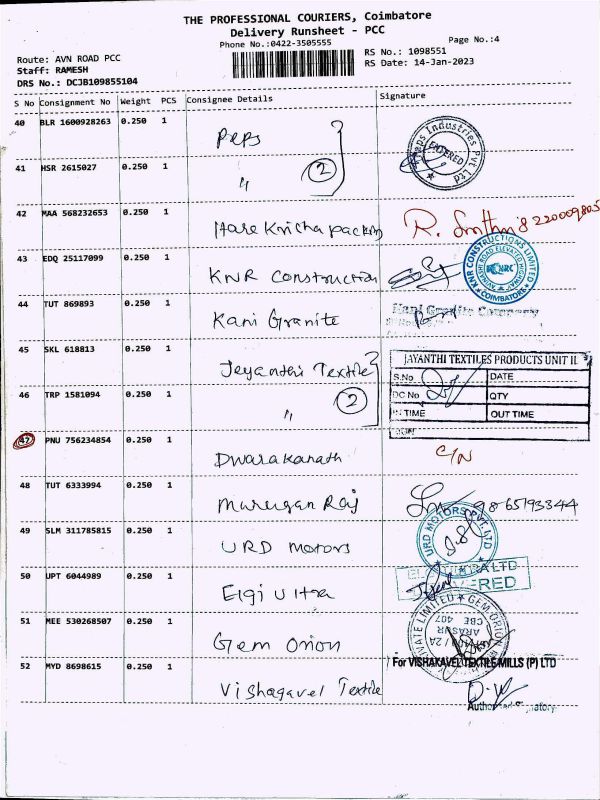 THE PROFESSIONAL COURIERS, Coimbatore
Delivery Runsheet - PCC
Phone No.:0422-3505555
Page No.:4
Route: AVN ROAD PCC
Staff: RAMESH
DRS No.: DCJB109855104
RS No.: 1098551
RS Date: 14-Jan-2023
S No Consignment No Weight PCS Consignee Details Signature
40 BLR 1600928263 0.250 1 Peps
Peps Industries Pvt Ltd
ENTERED
41 HSR 2615027 0.250 1 〃 2
42 MAA 568232653 0.250 1 Hare Kricha packing
43 EDQ 25117099 0.250 1 KNR Construction
KNR CONSTRUCTIONS LIMITED
KNRC
COIMBATORE
44 TUT 869893 0.250 1 Kani Granite
Kani Granite Company
45 SKL 618813 0.250 1 Jeyanthi Textile
JAYANTHI TEXTILES PRODUCTS UNIT II
S.No DATE
DC No QTY
IN TIME OUT TIME
SIGN
46 TRP 1581094 0.250 1 〃 2
47 PNU 756234854 0.250 1 Dwarakanath C/N
48 TUT 6333994 0.250 1 Murugan Raj 9865193344
49 SLM 311785815 0.250 1 URD Motors
URD MOTORS PVT. LTD
50 UPT 6044989 0.250 1 Elgi Ultra
51 MEE 530268507 0.250 1 Gem Orion
GEM ORION
PRIVATE LIMITED
ARASUR
CBE 407
52 MYD 8698615 0.250 1 Vishagavel Textile
For VISHAKAVEL TEXTILE MILLS (P) LTD